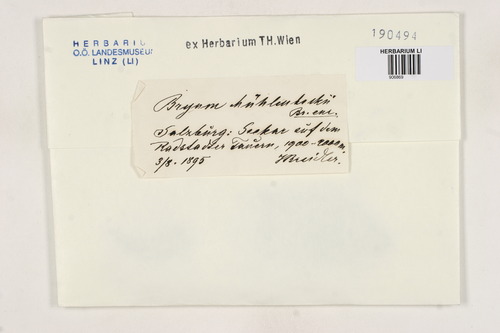 HERBARIU
O.Ö. LANDESMUSEUM
LINZ (LI)
ex Herbarium TH.Wien
190494
HERBARIUM LI
Bryum Mühlenbeckii
Br. eur.
Salzburg: Seekar auf dem
Radstadter Tauern, 1900-2000m
3/8. 1895